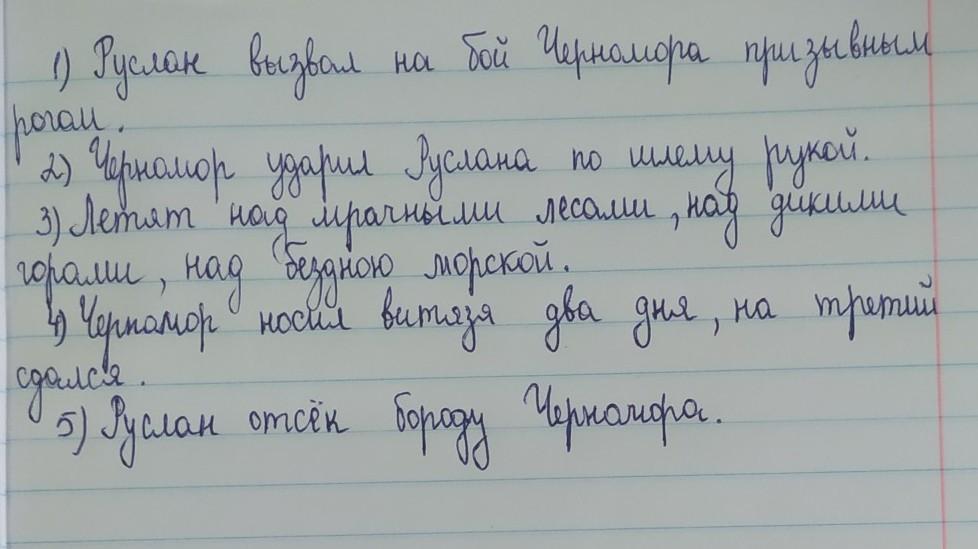 1) Руслан вызвал на бой Черномора призывным
рогом.
2) Черномор ударил Руслана по шлему рукой.
3) Летят над мрачными лесами, над дикими
горами, над бездною морской.
4) Черномор носил витязя два дня, на третий
сдался.
5) Руслан отсёк бороду Черномора.